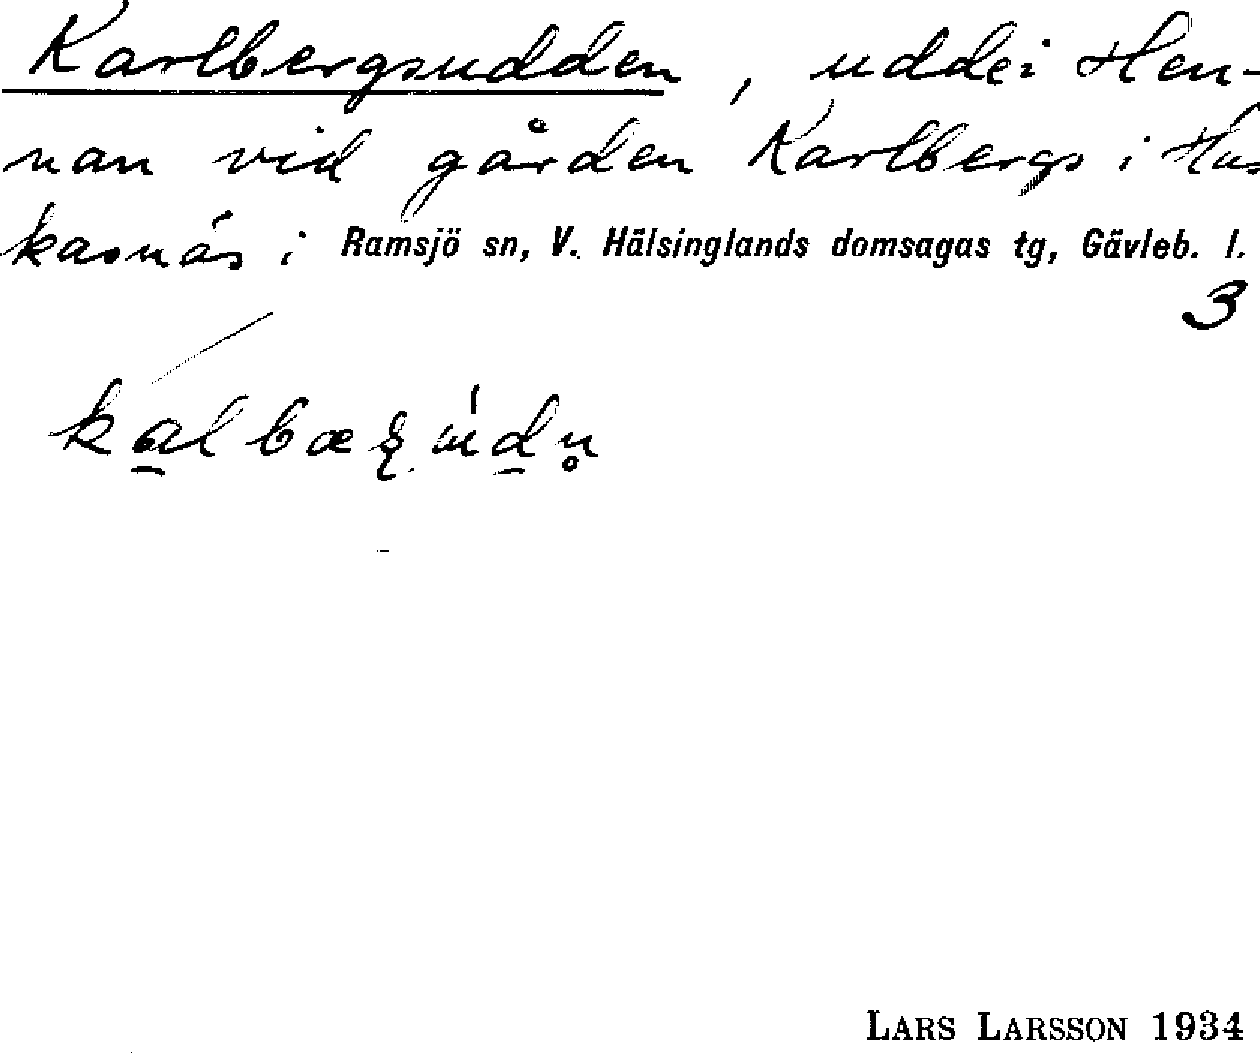 Karlbergsudden, udde i Hen-
nan vid gården Karlbergs i Hus
kasnäs i Ramsjö sn, V. Hälsinglands domsagas tg, Gävleb. l.
3
LARS LARSSON 1934